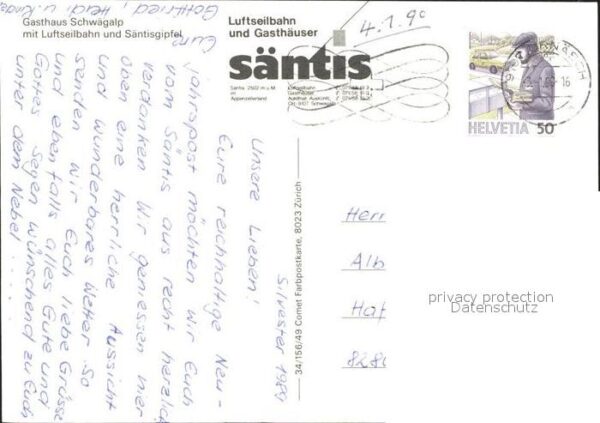 Gasthaus Schwägalp
mit Luftseilbahn und Säntisgipfel
Luftseilbahn
und Gasthäuser
säntis
Säntis 2502 m ü.M.
im
Appenzellerland
Luftseilbahn
Gasthäuser
CH-9107 Schwägalp
4.1.90
HELVETIA 50
Silvester 1989
Unsere Lieben!
Eure reichhaltige Neu-
jahrspost möchten wir Euch
vom Säntis aus recht herzlich
verdanken. Wir geniessen hier
oben eine herrliche Aussicht
und wunderbares Wetter. So
senden wir Euch liebe Grüsse
und ebenfalls alles Gute und
Gottes Segen wünschend zu Euch
unter dem Nebel.....
Eure
Gottfried, Heidi u. Kinder
34/156/49 Comet Farbpostkarte, 8023 Zürich
Herr
Alb
Haf
828
privacy protection
Datenschutz